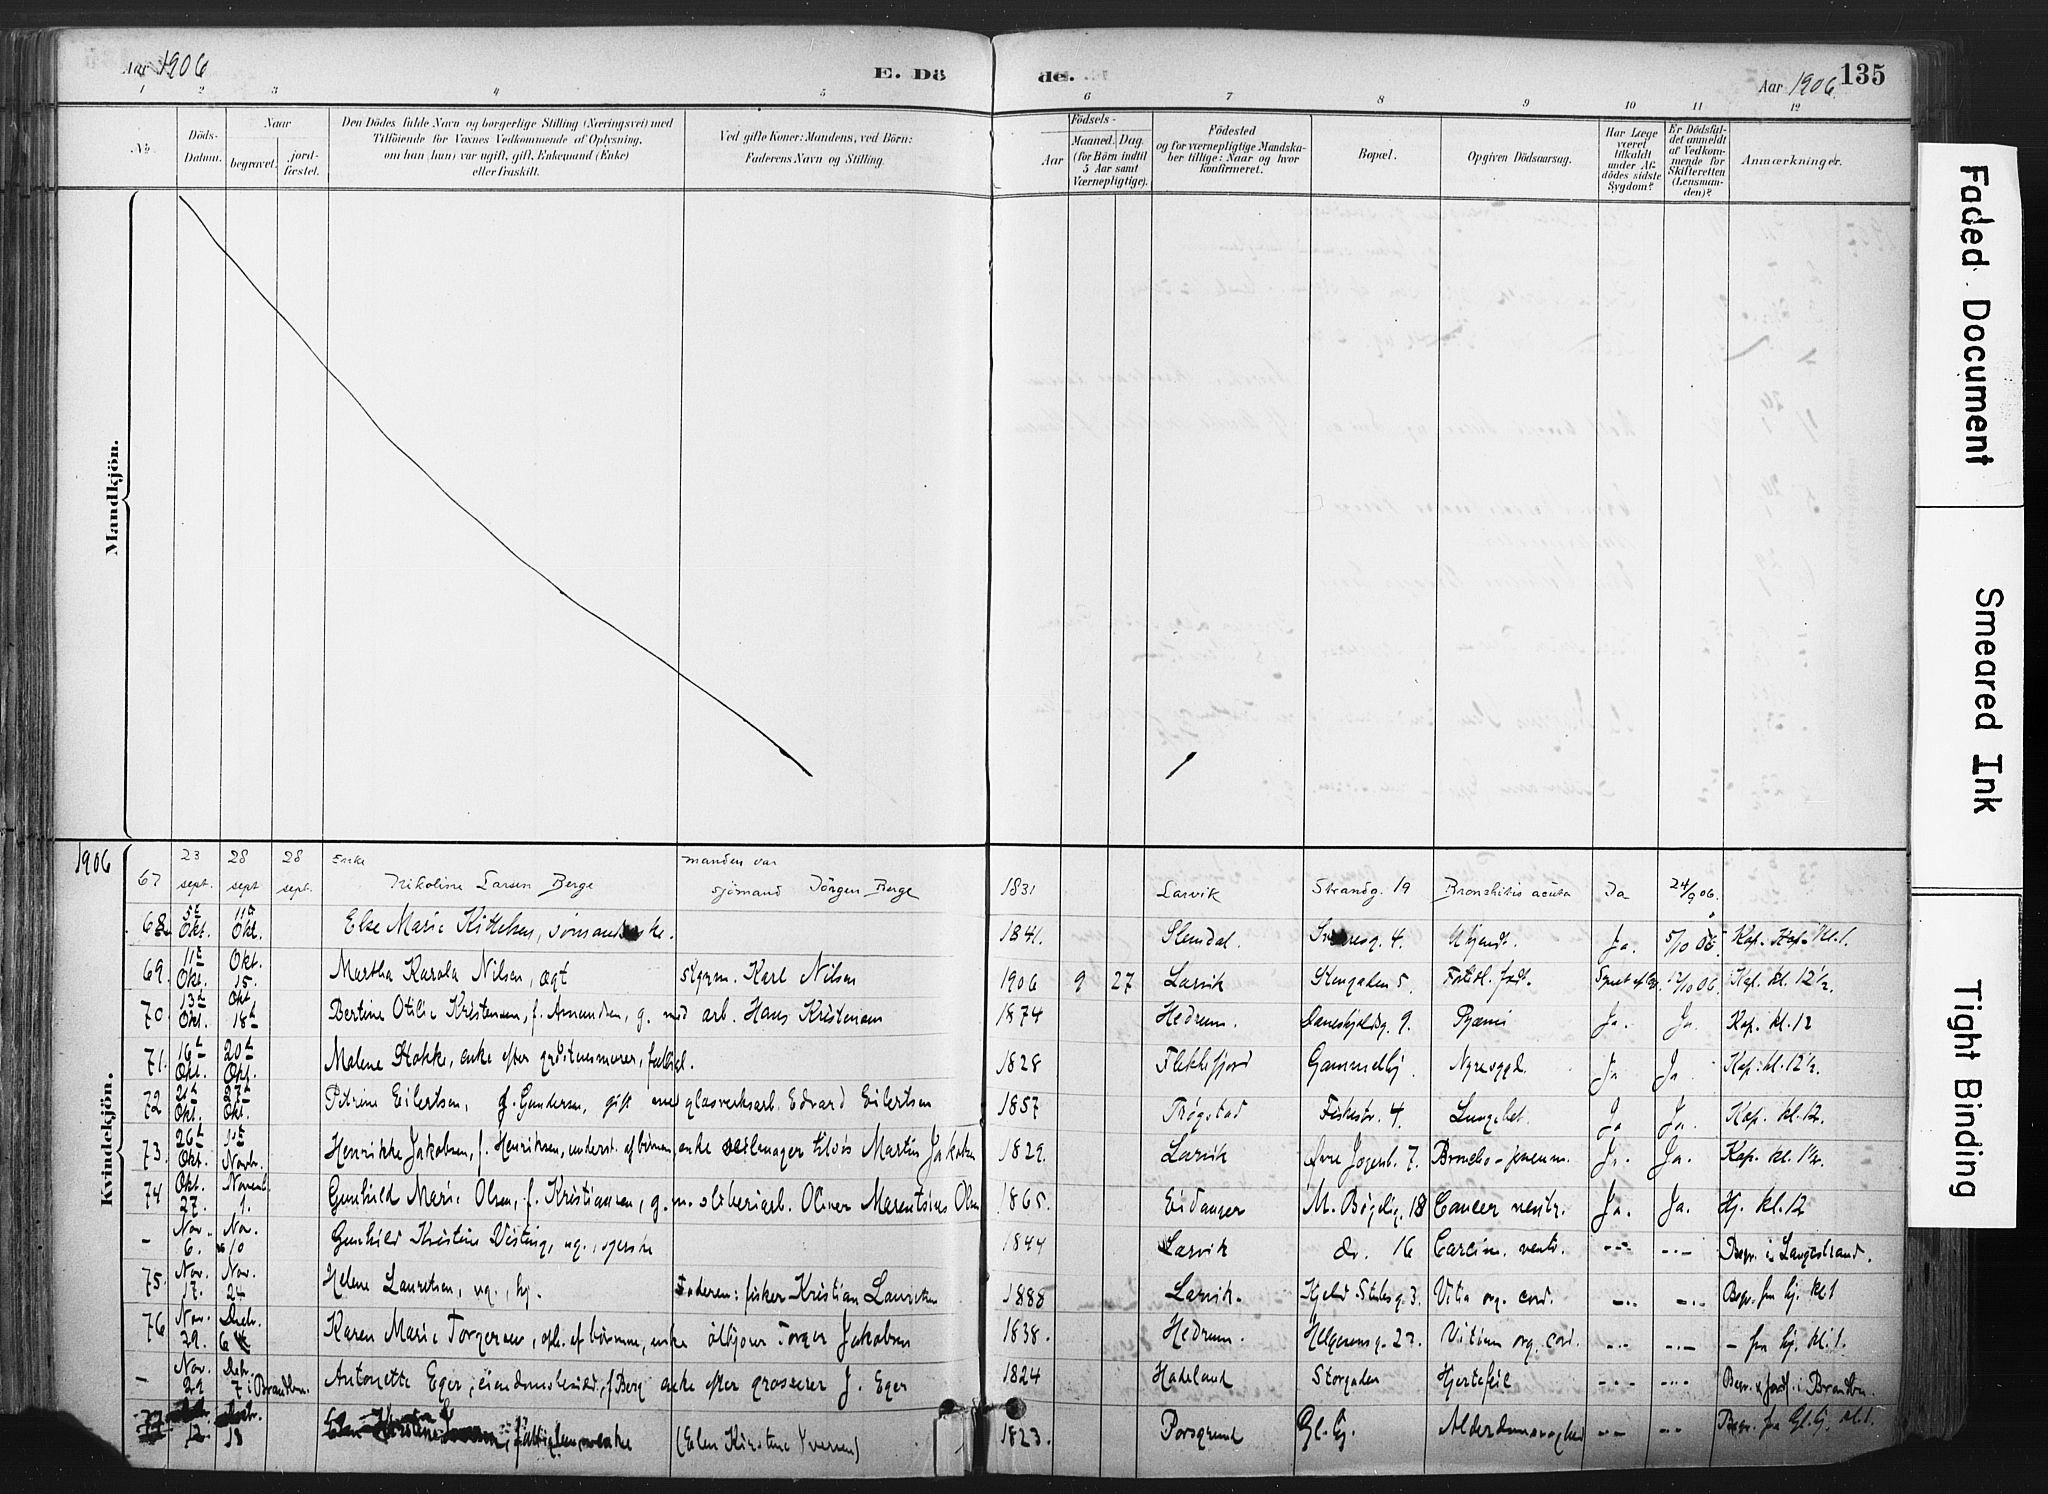 Aar 1906
E. Dö
de.
Aar 1906
135
1 2 3 4 5 6 7 8 9 10 11 12
No.
Döds-
Datum.
Naar
begravet.
jord-
fæstet.
Den Dödes fulde Navn og borgerlige Stilling (Næringsvei) med
Tilföiende for Voxnes Vedkommende af Oplysning,
om han (hun) var ugift, gift, Enkemand (Enke)
eller fraskilt.
Ved gifte Koner: Mandens, ved Börn:
Faderens Navn og Stilling.
Födsels-
Aar
Maaned.
Dag.
(for Börn indtil
5 Aar samt
Værnepligtige).
Födested
og for værnepligtige Mandska-
ber tillige: Naar og hvor
konfirmeret.
Bopæl.
Opgiven Dödsaarsag.
Har Læge
været
tilkaldt
under Af-
dødes sidste
Sygdom?
Er Dödsfal-
det anmeldt
af Vedkom-
mende for
Skifteretten
(Lensman-
den)?
Anmærkninger.
Mandkjön.
Kvindekjön.
1906
67 23 sept. 28 sept 28 sept. Enke Nikoline Larsen Berge manden var sjömand Jörgen Berge 1831 Larvik Strandg. 19 Bronchitis acuta Ja 24/9 06.
68 5te Okt. 11te Okt. Else Marie Kittelsen, 1841. Slemdal. 4. Ukjendt. Ja. 5/10 06 Kap. Kap. kl. 1.
69. 11te Okt. Okt. 15. Martha Karola Nilsen, ægt Styrm. Karl Nilsen 1906 9 27 Larvik Stengaden 5. 12/10 06. Kap. kl. 12½.
70. 13de Okt. Okt. 18de Bertine Otilie Kristensen, f. Amundsen, g. med arb. Hans Kristensen 1874 Hedrum. Daneskjoldsg. 9. Pyæmi Ja. Ja. Kap. kl. 12
71. 16de Okt. 20de Okt. Malene Stokke, enke efter 1828 Flekkefjord Gammelhj Ja Ja Kap. kl. 12½.
72. 21de Okt. 27de Okt. Petrine Eilertsen, f. Gundersen, gift med glasverksarb. Edvard Eilertsen 1857 Trøgstad Fiskestr. 4. Lungebet. Ja Ja. Kap. kl. 12.
73. 26de Okt. 1ste Novbr. Henrikke Jakobsen, f. Henriksen, underst. af børnene, enke seilmager Martin Jakobsen 1829. Larvik Øvre Jegersb. 7. Broncho-pneum. Ja. Ja. Kap. kl.
74. Okt. 27. Novemb. 1. Gunhild Marie Olsen, f. Kristiansen, g. m. sliberiarb. Oliver Marentsius Olsen 1865. Eidanger M. Bøgelig. 18 Cancer ventr. Ja. Ja. Hj. kl. 12
- Nov. 6. Nov. 10 Gunhild Kristine Wisting, ug., syerske 1844 Larvik do. 16 Carcin. ventr. -"- -"- Begr. i Langestrand.
75. Nov. 17. Nov. 24 Helene Lauritsen, ug., hj. Faderen: fisker Kristian Lauritsen 1888 Larvik. Kjeld Stubsg. 3. Vitia org. cord. -"- -"- Begr. fra hj. kl. 1
76 Nov. 29. Decbr. 6 Karen Marie Torgersen, af børnene, enke ølkjører Torger Jakobsen 1838. Hedrum. Helgerønsg. 23. Vitium org. cord. -"- -"- - fra hj. kl. 1.
- Nov. 29 Debr. 7 i Brandbu. Antonette Eger, eiendomsbesidd., f. Berg enke efter grosserer J. Eger 1824 Hadeland Storgaden Hjertefeil -"- -"- Begr. & jordf. i Brandbu.
77 12. 18 (Elen Kirstine Iversen) 1823. Porsgrund Gl. hj. Alderdomssvaghed -"- -"- Begr. fra Gl. hj. kl. 1.
Faded Document
Smeared Ink
Tight Binding